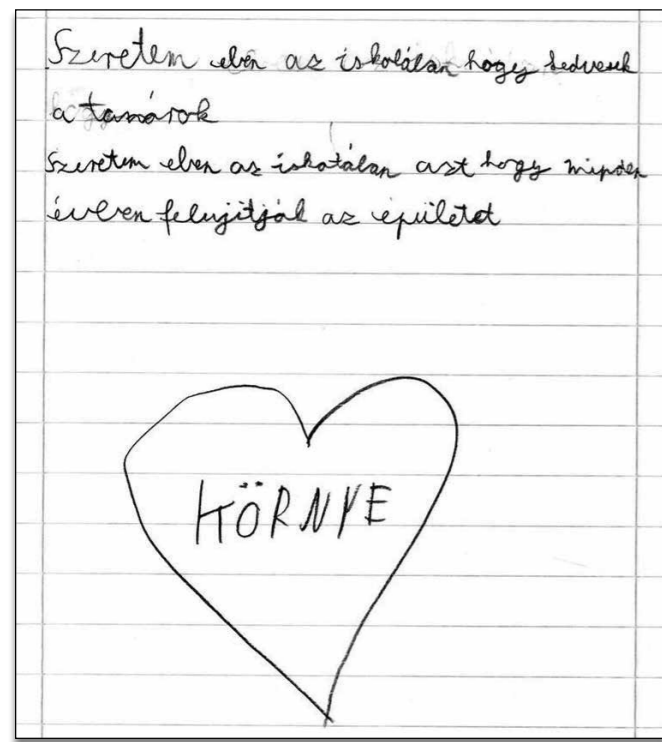 Szeretem eben az iskolában hogy kedvesek
a tanárok
Szeretem eben az iskolában azt hogy minden
évben felujitják az épületet
KÖRNYE